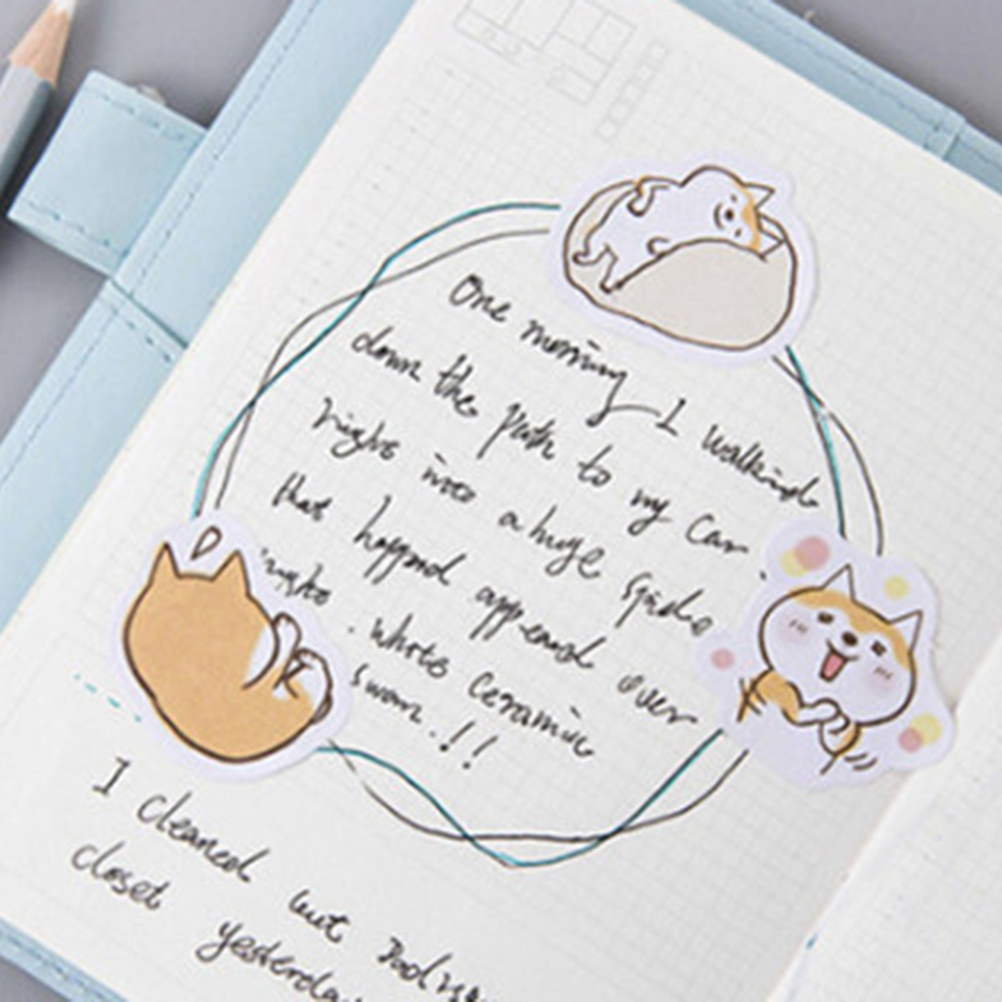 One morning I walkind
down the path to my car.
right into a huge
that happend appeared over
white ceramic
swan.!!
I cleaned out
closet yesterday